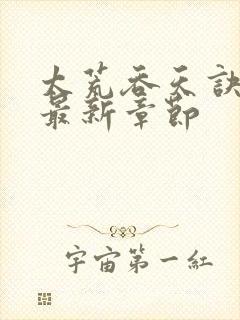 大荒吞天訣
最新章節
宇宙第一紅